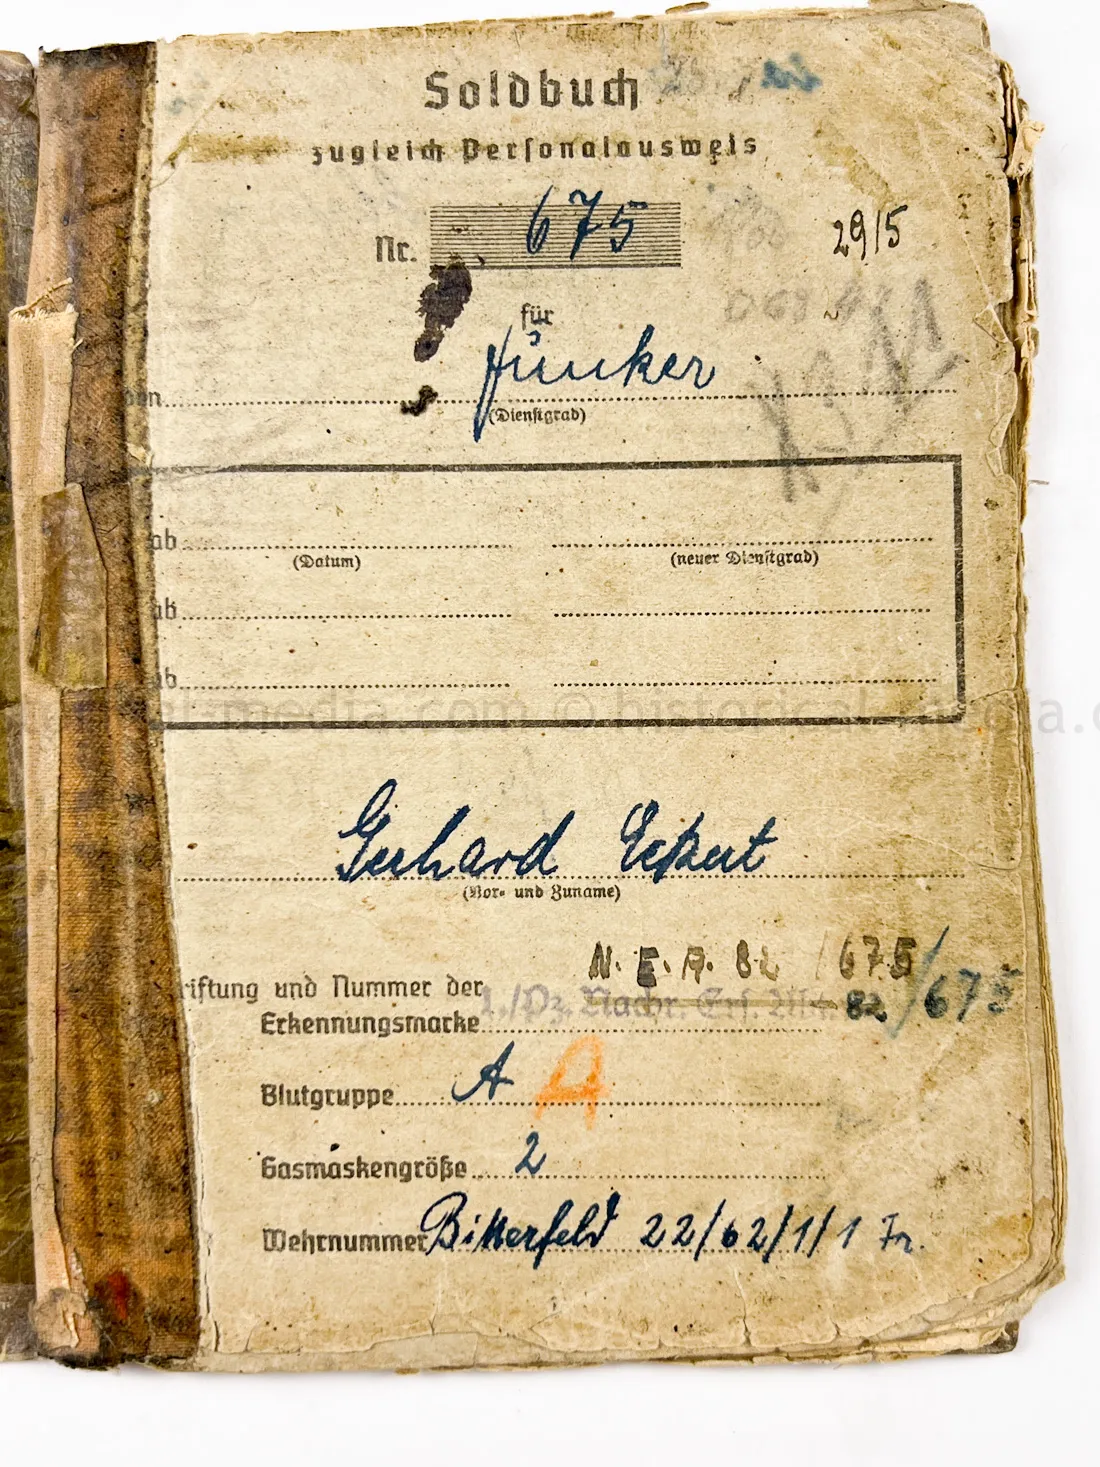 Soldbuch
zugleich Personalausweis
Nr. 675
29/5
für
Funker
(Dienstgrad)
ab
(Datum) (neuer Dienstgrad)
ab
ab
media.com © historical-media.c
Gerhard Eckert
(Vor- und Zuname)
N. E. A. 82 /675
riftung und Nummer der
1./Pz. Nachr. Ers. Abt. 82/675
Erkennungsmarke
Blutgruppe A A
Gasmaskengröße 2
Wehrnummer Bitterfeld 22/62/1/1 Fr.